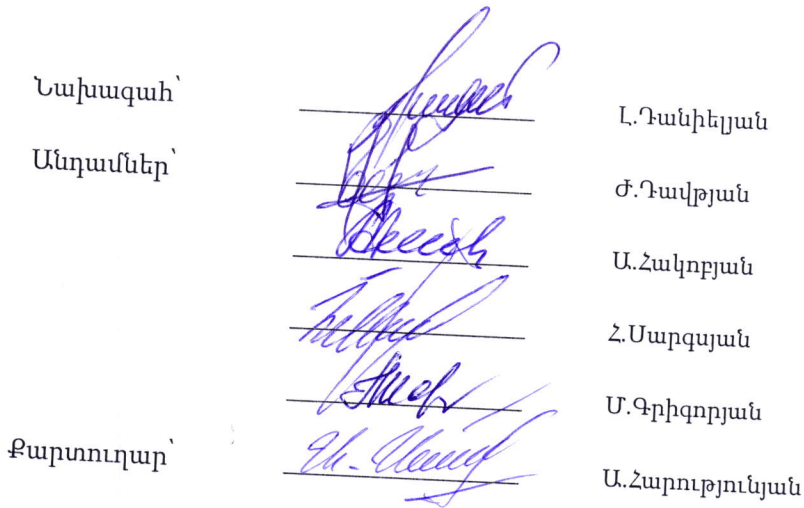 Նախագահ՝ Լ.Դանիելյան
Անդամներ՝ Ժ.Դավթյան
Ա.Հակոբյան
Հ.Սարգսյան
Մ.Գրիգորյան
Քարտուղար՝ Ա.Հարությունյան